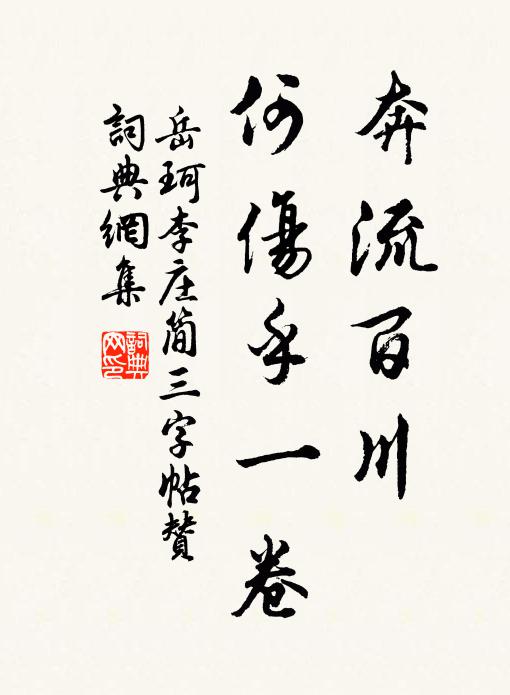 奔流百川
何傷乎一卷
岳珂李庄簡三字帖贊
詞典網集
詞典網印